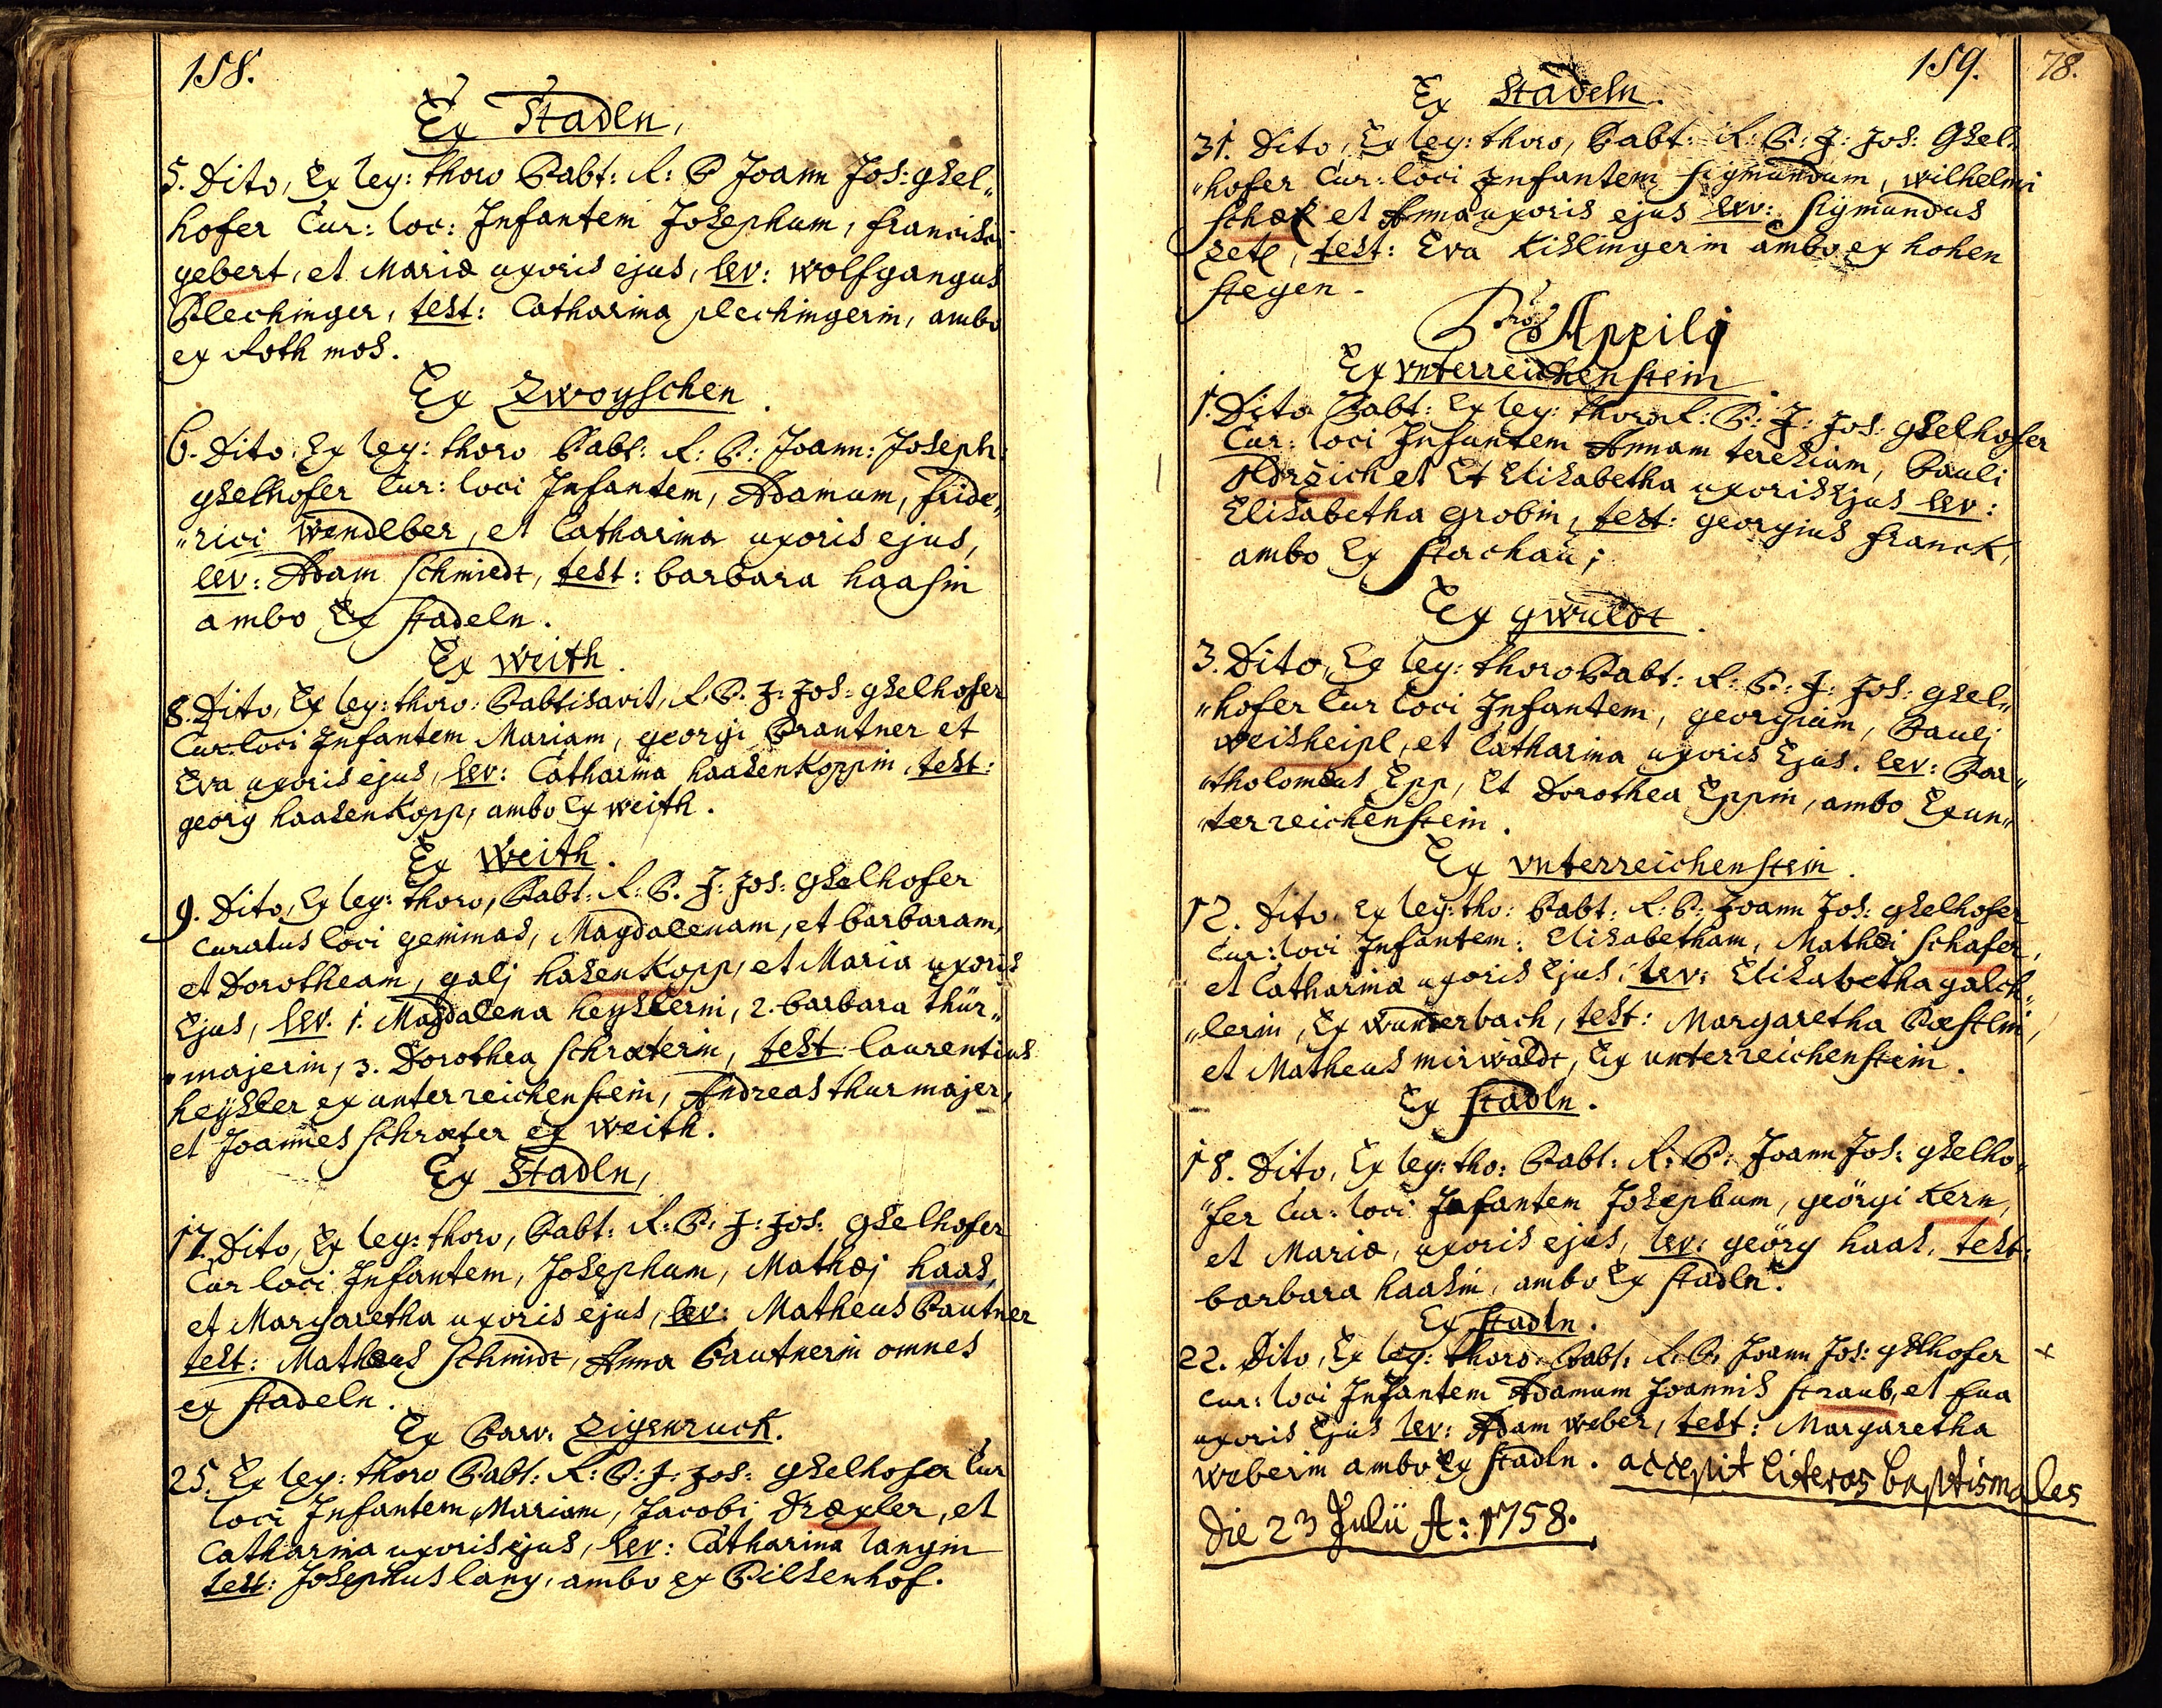 158.
Ex Stadln,
5. Dito, Ex leg: thoro Babt: R: P Joann Jos: gsel„
hofer Cur: loc: Infantem Josephum, francisci
gebert, et Mariæ uxoris ejus, lev: wolfgangus
Plechinger, test: Catharina plechingerin, ambo
ex Roth mos.
Ex Zwoyschen.
6. Dito Ex leg: thoro Babt: R: P: Joann: Joseph:
gselhofer Cur: loci Infantem, Adamum, fride„
„rici Wendlber, et Catharina uxoris ejus,
lev: Adam Schmiedt, test: barbara haasin
ambo Ex stadeln.
Ex Weith.
8. Dito, Ex leg: thoro: Babtisavit, R. P. J: Jos: gselhofer
Cur loci Infantem Mariam, georgi Brantner et
Eva uxoris ejus, lev: Catharina haasenkoppin, test:
georg haasenkopp, ambo Ex weith.
Ex Weith.
9. Dito, Ex leg: thoro, Babt: R: P. J: Jos: Gselhofer
Curatus loci geminas, Magdalenam, et barbaram,
et Dorotheam, galj hasenkopp, et Maria uxoris
Ejus, lev. 1. Magdalena heyslerin, 2. barbara thür„
„majerin, 3. Dorothea schræterin, test: laurentius
heysler ex unterreichenstein, Andreas thurmajer,
et Joannes schræter ex weith.
Ex Stadln,
17. Dito, Ex leg: thoro, Babt: R: P: J: Jos: Gselhofer
Cur loci Infantem, Josephum, Mathæj haas,
et Margaretha uxoris ejus, lev: Matheus Bautner
test: Mathæus Schmidt, Anna Bautnerin omnes
ex stadeln.
Ex Parv: Zigenruck.
25. Ex leg: thoro Babt: R: P: J: Jos: Gselhofer Cur
loci Infantem Mariam, Jacobi Dræxler, et
Catharina uxoris ejus, lev: Catharina langin
test: Josephus lang, ambo ex Pilsenhof.
159.
78.
Ex Stadeln.
31. Dito, Ex leg: thoro, Babt: R: P: J: Jos: Gsel„
„hofer Cur: loci Infantem sigmundum, wilhelmi
et Anna uxoris ejus lev: sigmundus
test: Eva Kislingerin ambo ex hohen
stegen.
Pro Aprilj
Ex vnterreichenstein.
1. Dito Babt: Ex leg: thoro R: P: J: Jos: gselhofer
Cur: loci Infantem Annam teresiam, Pauli
et Elisabetha uxoris Ejus lev:
Elisabetha grobin, test: georgius franck,
ambo Ex stachau;
Ex gwuldt.
3. Dito, Ex leg: thoro Babt: R: P: J: Jos: gsel„
„hofer Cur loci Infantem, georgium, Paulj
weisheipl, et Catharina uxoris Ejus. lev: Bar„
„tholomæus Epp, Et Dorothea Eppin, ambo Ex un„
„terreichenstein.
Ex vnterreichenstein.
12. Dito Ex leg: tho: Babt: R: P: Joann Jos: gselhofer
Cur: loci Infantem: Elisabetham, Mathæi schafer,
et Catharinæ uxoris Ejus: lev: Elisabetha galch„
„lerin, Ex wunterbach, test: Margaretha Pæstlin,
et Matheus mirwaldt, Ex unterreichenstein.
Ex stadln.
18. Dito, Ex leg: tho: Babt: R: P: Joann Jos: gselho„
„fer Cur: loci Infantem Josephum, geörgi Kern,
et Mariæ, uxoris ejus, lev: geörg haas, test:
barbara haasin, ambo Ex stadln.
Ex stadln.
22. Dito, Ex leg: thoro Babt: R: P: Joann Jos: gslhofer +
Cur: loci Infantem Adamum Joannis straub, et Eua
uxoris Ejus lev: Adam weber, test: Margaretha
weberin ambo Ex stadln. accepit literas baptismales
Die 23 Julii A: 1758.